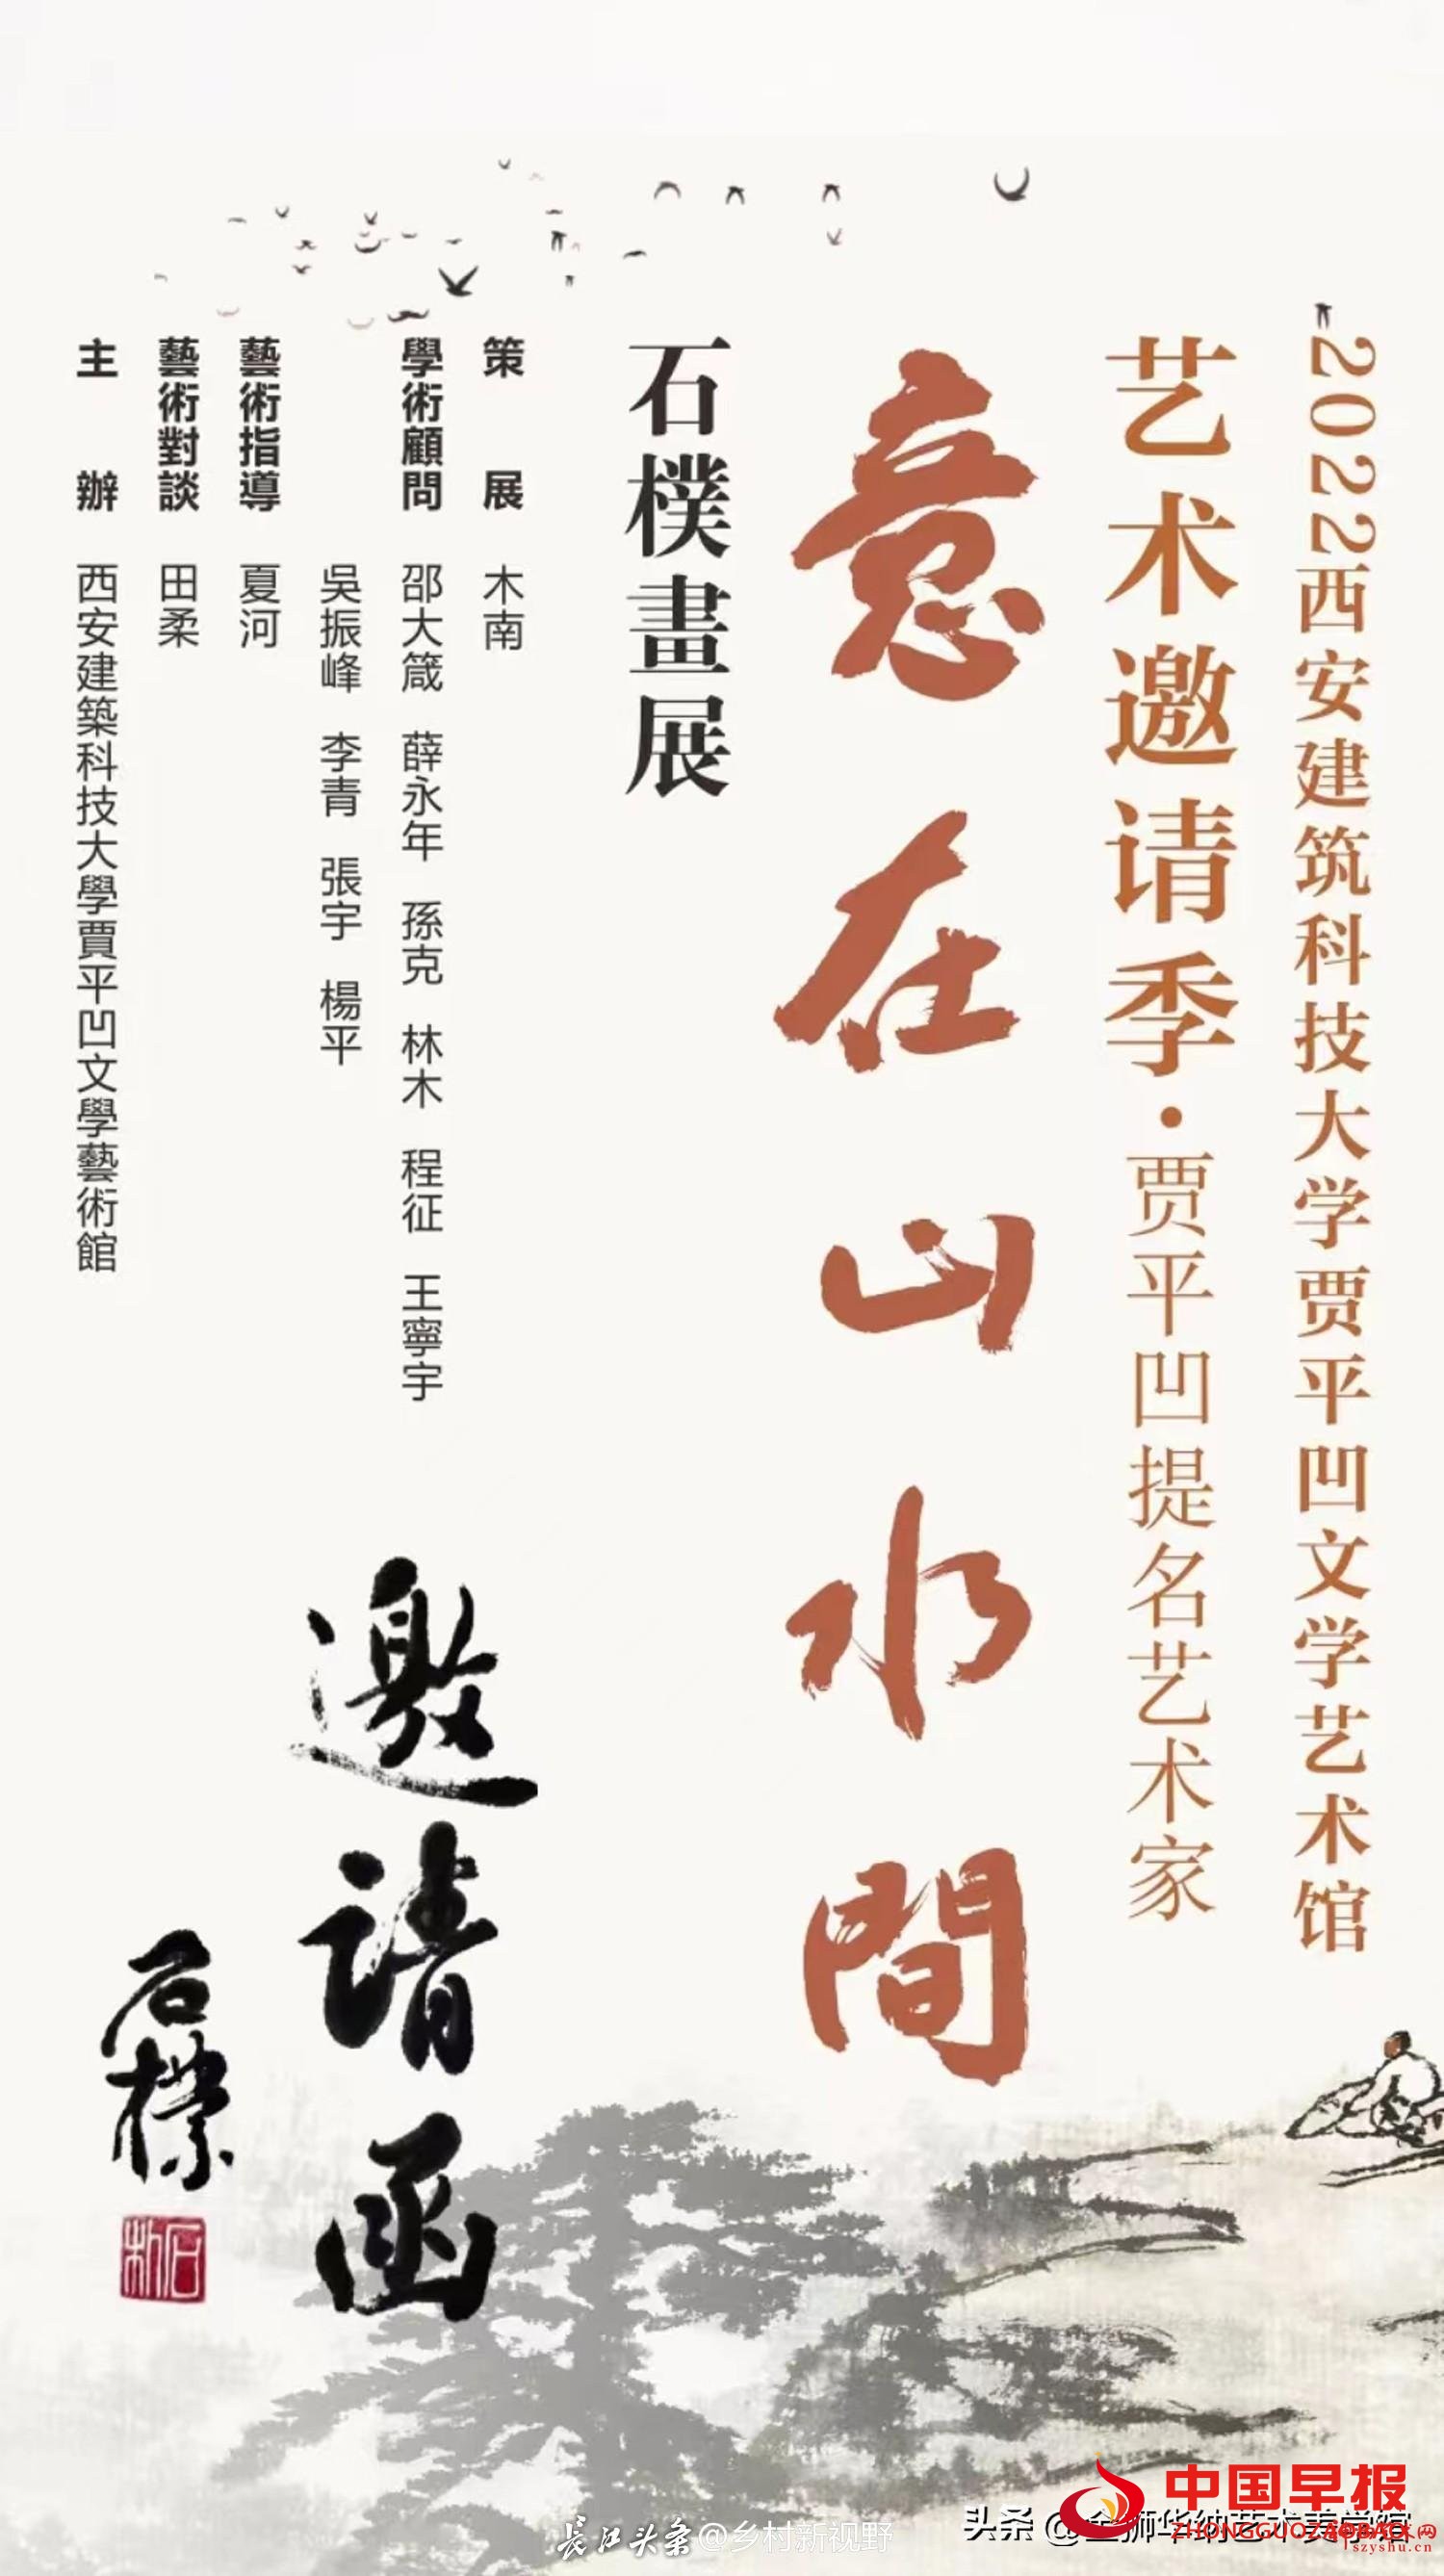 2022西安建筑科技大学贾平凹文学艺术馆
艺术邀请季·贾平凹提名艺术家
意在山水間
石樸畫展
策展 木南
學術顧問 邵大箴 薛永年 孫克 林木 程征 王寧宇
吳振峰 李青 張宇 楊平
藝術指導 夏河
藝術對談 田柔
主辦 西安建築科技大學賈平凹文學藝術館
邀請函
石樸
长江头条@乡村新视野
头条
中国早报
szyshu.cn